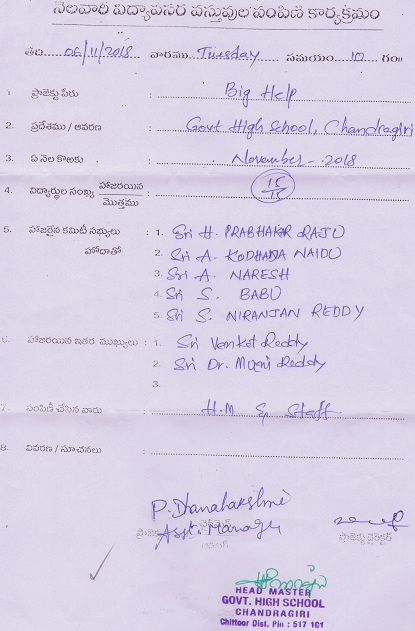 నెలవారీ విద్యావసర వస్తువుల పంపిణీ కార్యక్రమం
తేది 06/11/2018 వారము Tuesday సమయం 10 గం॥
1. ప్రాజెక్టు పేరు : Big Help
2. ప్రదేశము / ఆవరణ : Govt High School, Chandragiri
3. ఏ నెల కొఱకు : November - 2018
4. విద్యార్థుల సంఖ్య హాజరయిన / మొత్తము : 15/15
5. హాజరైన కమిటీ సభ్యులు : 1. Sri H. PRABHAKAR RAJU
హోదాతో 2. Sri A. KODHANDA NAIDU
3. Sri A. NARESH
4. Sri S. BABU
5. Sri S. NIRANJAN REDDY
6. హాజరయిన ఇతర ముఖ్యులు : 1. Sri Venkat Reddy
2. Sri Dr. Muni Reddy
3.
7. పంపిణీ చేసిన వారు : H.M & Staff
8. వివరణ / సూచనలు :
P. Dhanalakshmi
Asst. Manager
ప్రాజెక్టు డైరెక్టర్
HEAD MASTER
GOVT. HIGH SCHOOL
CHANDRAGIRI
Chittoor Dist. Pin : 517 101